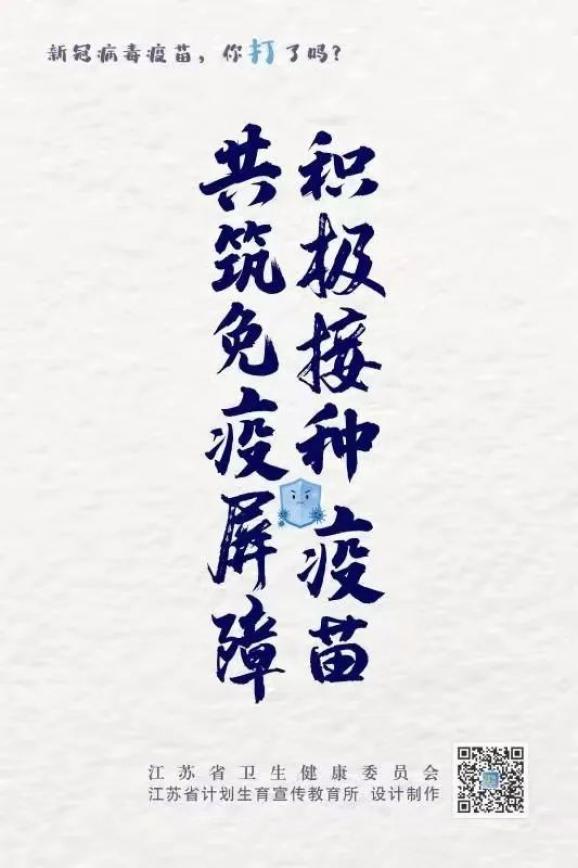 新冠病毒疫苗，你打了吗？
积极接种疫苗
共筑免疫屏障
江苏省卫生健康委员会
江苏省计划生育宣传教育所 设计制作